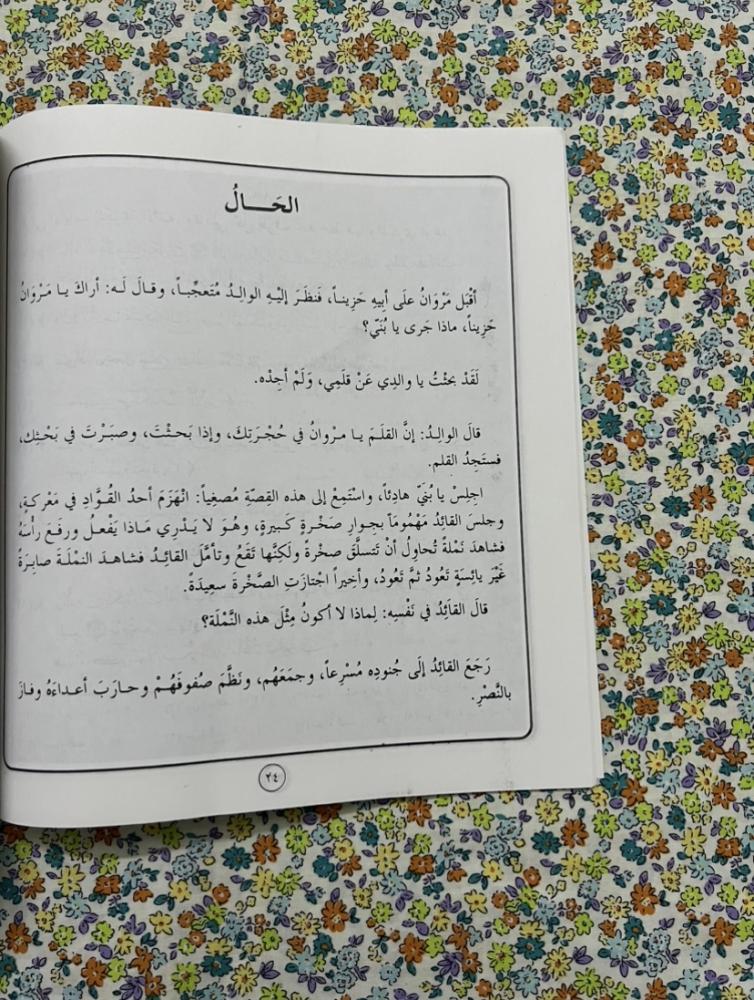 الحَـــالُ
أقْبَل مَرْوَانُ علَى أبيهِ حَزِيناً، فَنظَرَ إليْهِ الوالِدُ مُتَعجِّباً، وقـالَ لَـه: أراكَ يـا مَـرْوَانُ
حَزِيناً، ماذا جَرى يا بُنَيّ؟
لَقَدْ بحثْتُ يا والدِي عَنْ قلَمِي، وَلَمْ أجِدْه.
قالَ الوالِدُ: إنَّ القلَمَ يـا مـرْوانُ في حُجْرَتِكَ، وإذا بَحـثْتَ، وصبَرْتَ في بَحْثِك،
فستَجِدُ القلم.
اجلِسْ يا بُنَيّ هادِئاً، واسْتَمِعْ إلى هذه القِصّةِ مُصغِياً: انْهزَمَ أحدُ القُـوَّادِ في مَعْركةٍ،
وجلسَ القائِدُ مَهْمُوماً بجِوارِ صَخْرةٍ كَبيرةٍ، وهُـوَ لا يَـدْرِي مَـاذا يَفْعـلُ ورفعَ رأْسَهُ
فشاهَدَ نَملةً تُحاوِلُ أنْ تَتسلَّقَ صخْرةً ولكِنَّها تَقَعُ وتأمَّلَ القائِـدُ فشاهـدَ النمْلَـةَ صابِرةً
غَيْرَ يائسةٍ تَعُودُ ثمَّ تَعُود، وأخِيراً اجْتازَتِ الصَّخْرةَ سعِيدَةً.
قالَ القائِدُ في نَفْسِه: لِماذا لا أكونُ مِثْلَ هذه النَّمْلَة؟
رَجَعَ القائِدُ إلَى جُنودِه مُسْرِعاً، وجمَعَهُم، ونَظَّمَ صُفوفَهُـمْ وحـارَبَ أعـداءَهُ وفـازَ
بالنَّصْرِ.
٢٤